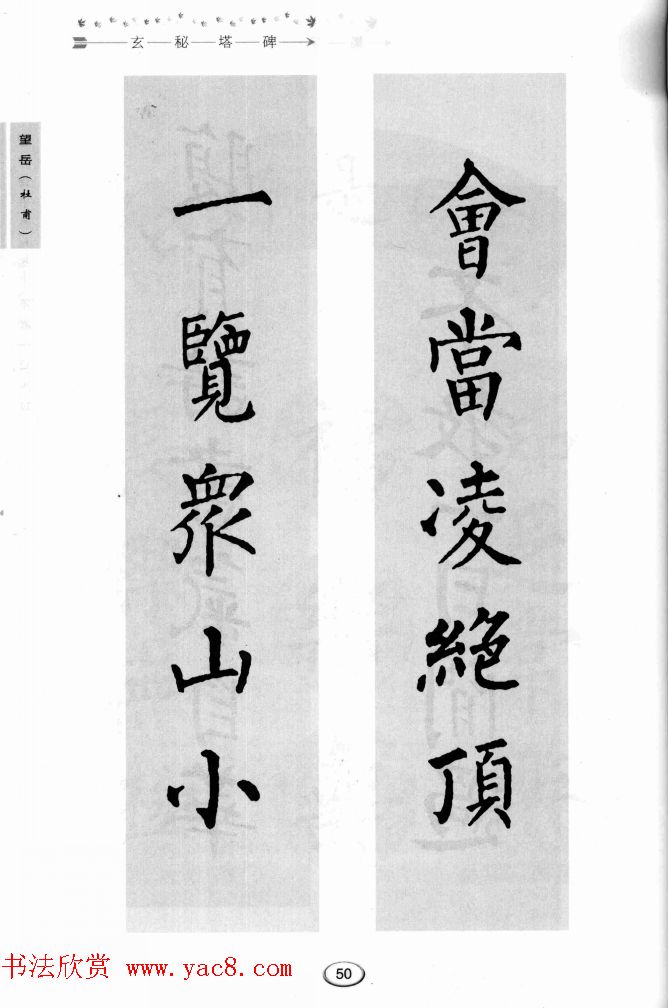 玄秘塔碑
望岳（杜甫）
會當凌絕頂
一覽衆山小
50
书法欣赏 www.yac8.com